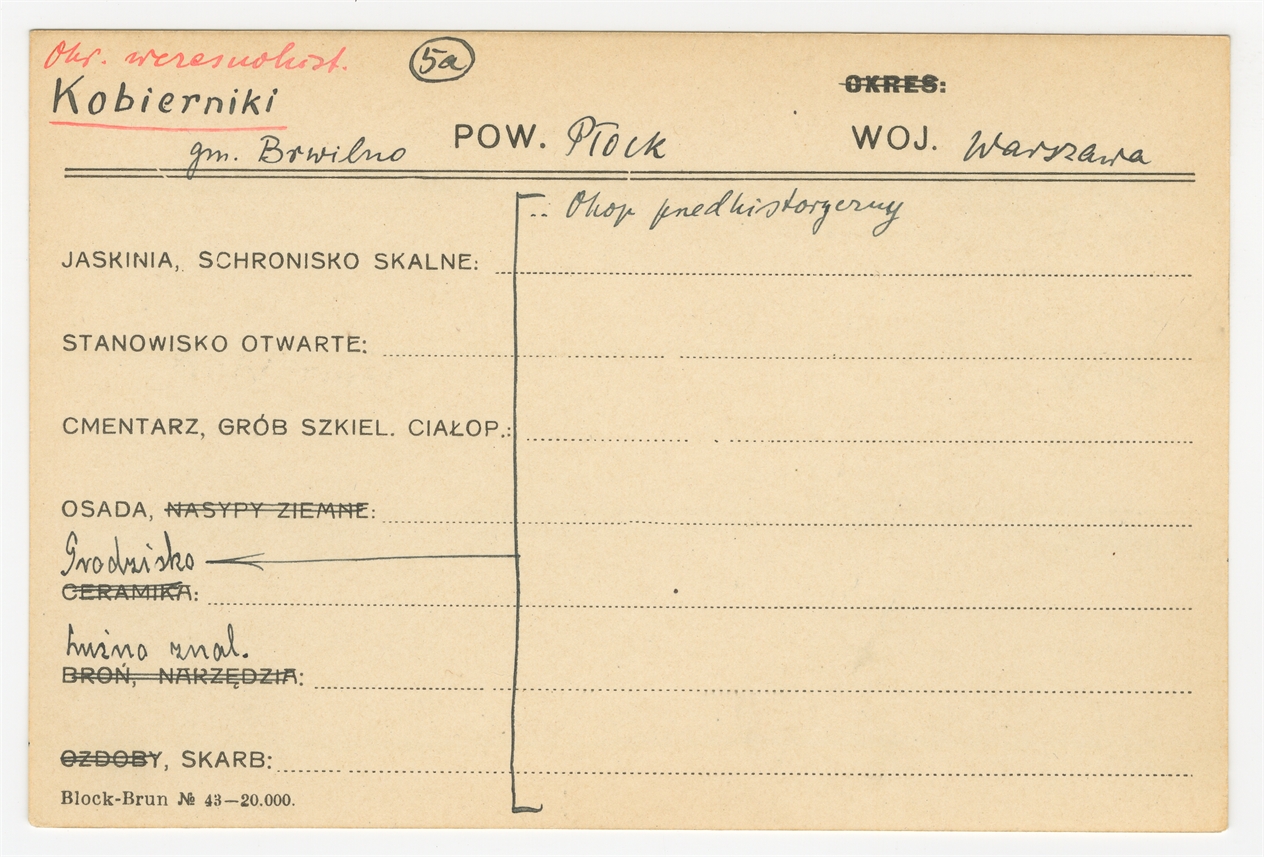 Okr. wczesnohist. 5a
Kobierniki
OKRES:
gm. Brwilno POW. Płock WOJ. Warszawa
.. Okop predhistoryczny
JASKINIA, SCHRONISKO SKALNE:
STANOWISKO OTWARTE:
CMENTARZ, GRÓB SZKIEL. CIAŁOP.:
OSADA, NASYPY ZIEMNE:
Grodzisko
CERAMIKA:
Luźno znal.
BROŃ, NARZĘDZIA:
OZDOBY, SKARB:
Block-Brun № 43—20.000.